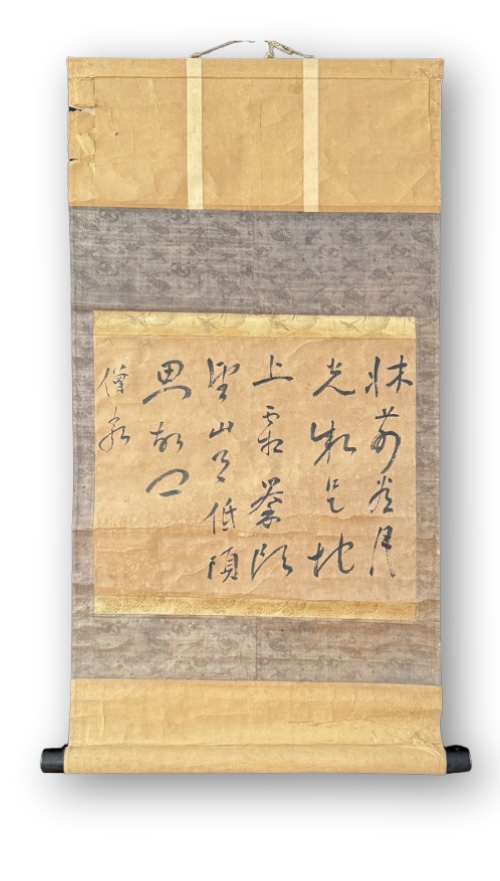 牀前看月
光疑是地
上霜挙頭
望山月低頭
思故郷
僧